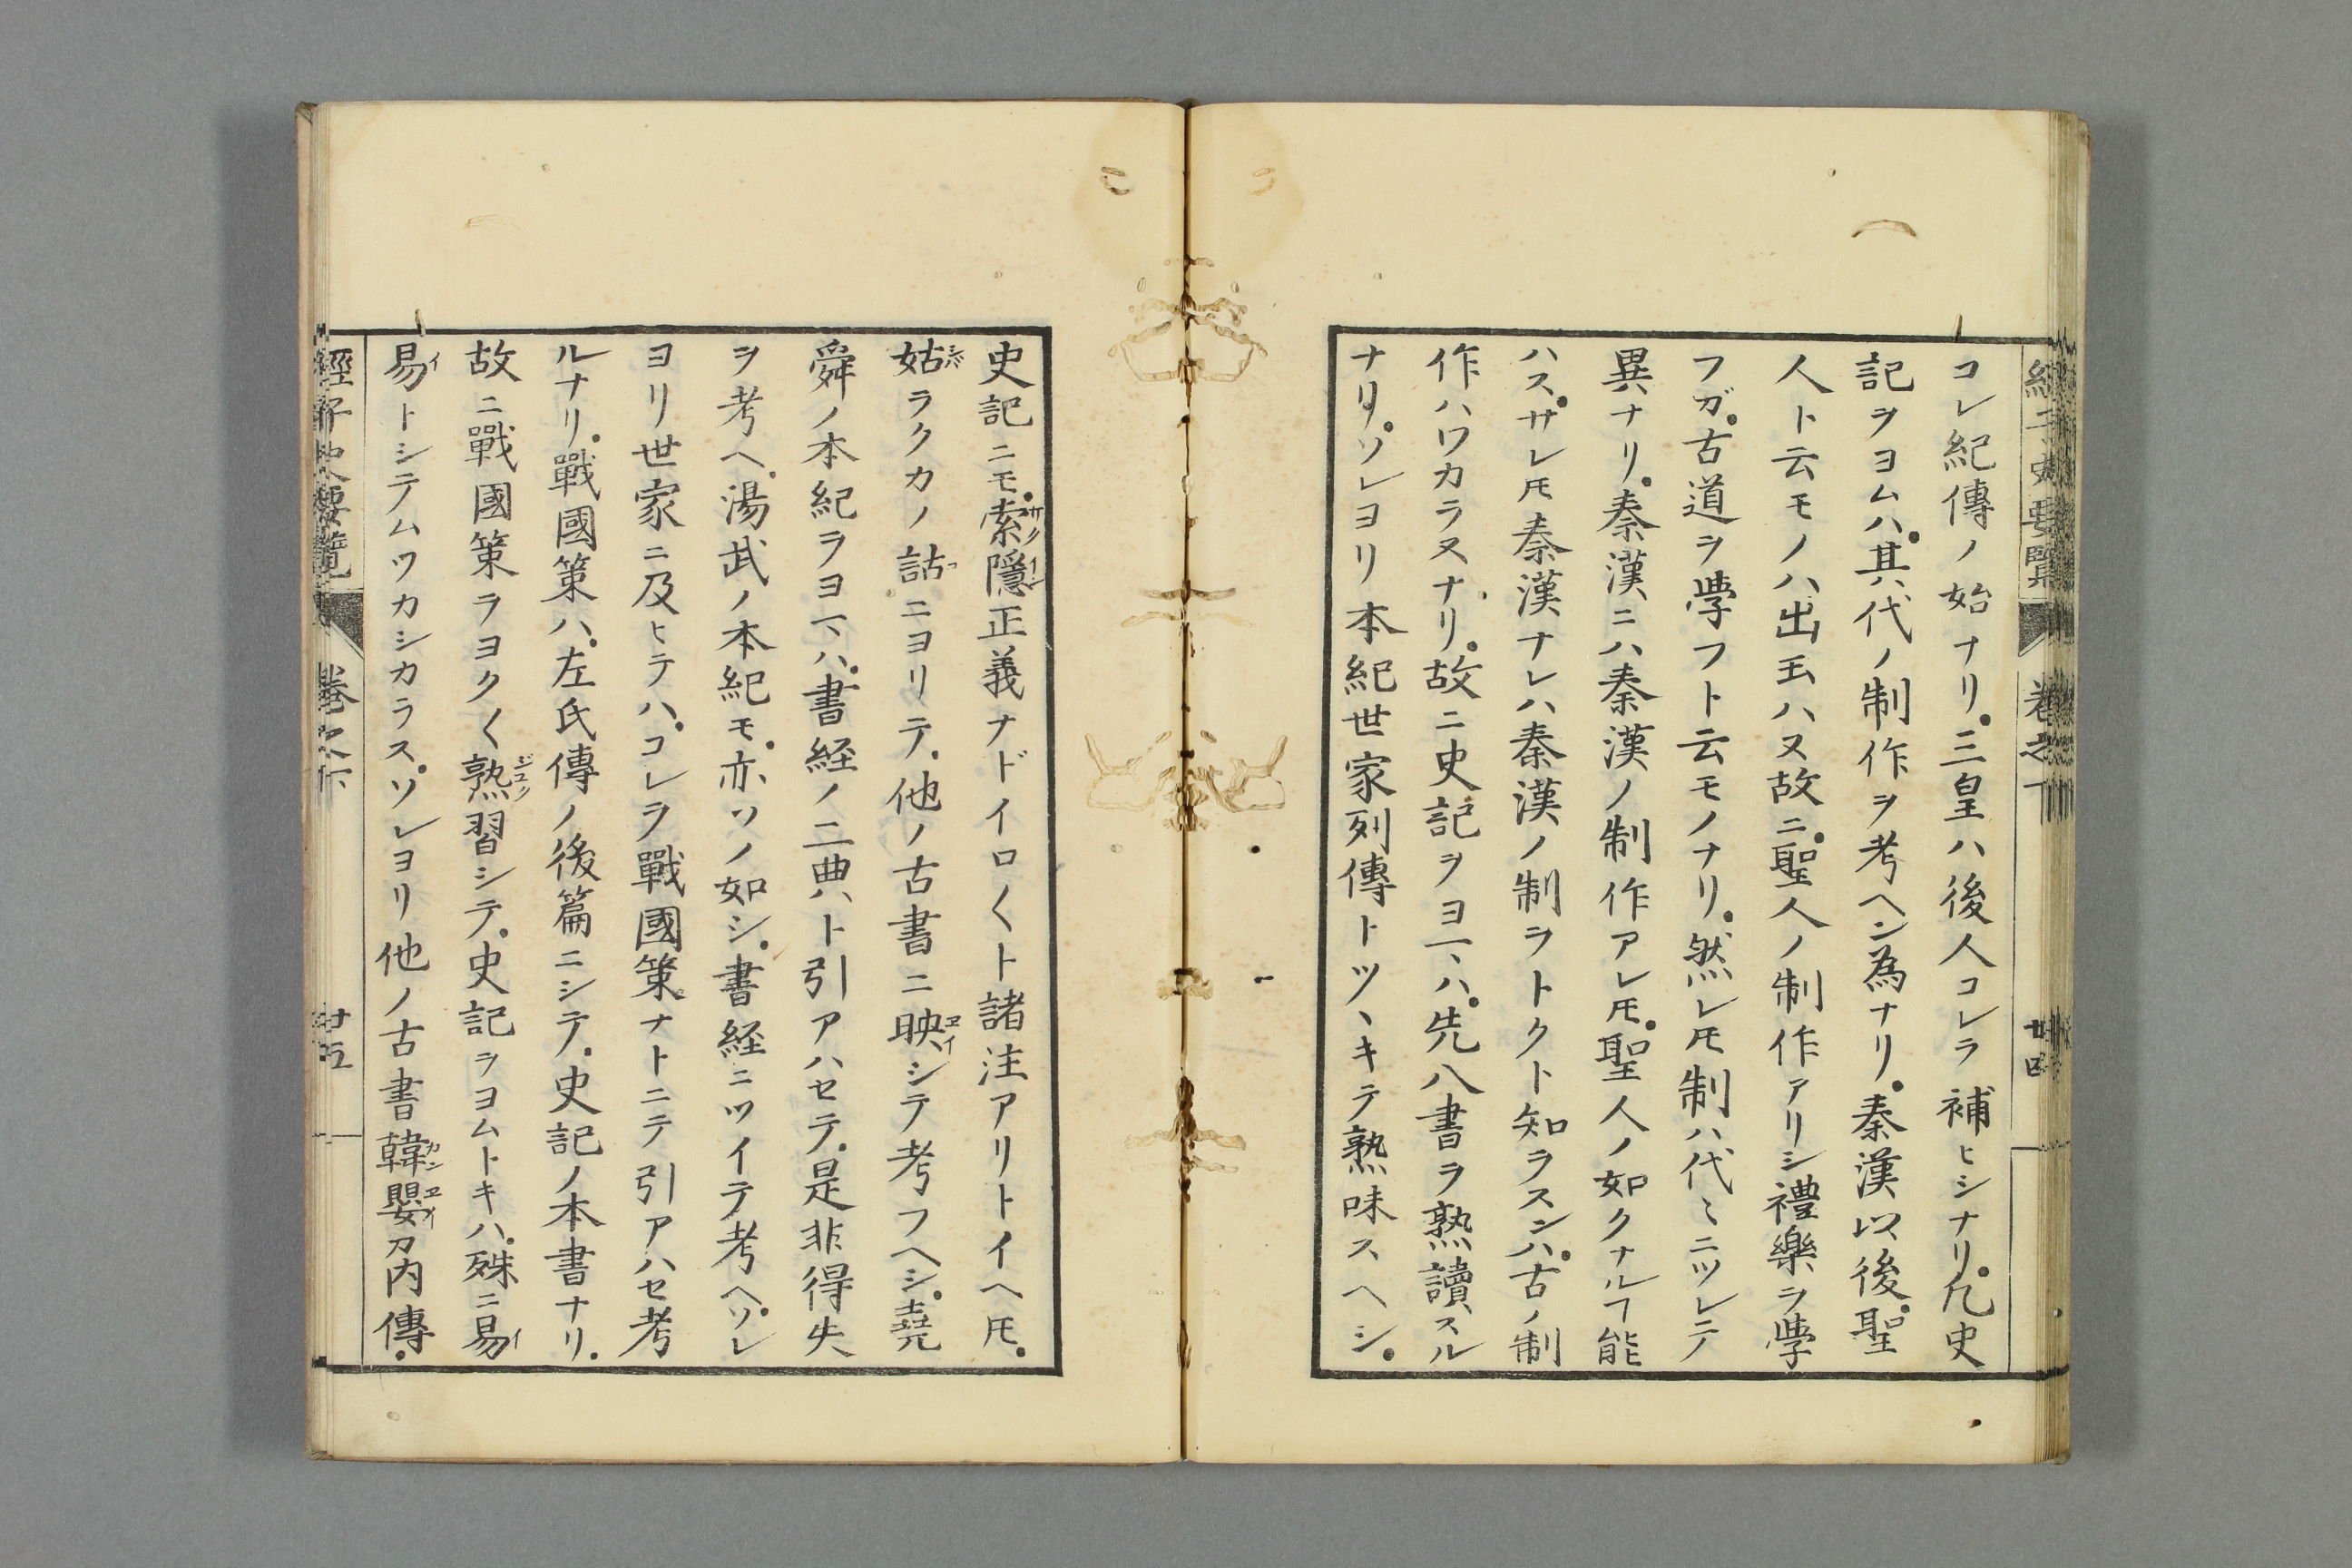 經子史要覽 卷之下 廿四
コレ紀傳ノ始ナリ。三皇ハ後人コレヲ補ヒシナリ。凡史
記ヲヨムハ。其代ノ制作ヲ考ヘン為ナリ。秦漢以後。聖
人ト云モノハ出玉ハヌ故ニ。聖人ノ制作アリシ禮樂ヲ學
フガ。古道ヲ學フト云モノナリ。然レ𪜈制ハ代〻ニツレテ
異ナリ。秦漢ニハ秦漢ノ制作アレ𪜈。聖人ノ如クナルヿ能
ハス。サレ𪜈秦漢ナレハ秦漢ノ制ヲトクト知ラスンハ。古ノ制
作ハワカラヌナリ。故ニ史記ヲヨマヽハ。先八書ヲ熟讀スル
ナリ。ソレヨリ本紀世家列傳トツヽキテ熟味スヘシ。
史記ニモ。索隱正義ナドイロ〱ト諸注アリトイヘ𪜈。
姑ラクカノ詁ニヨリテ。他ノ古書ニ映シテ考フヘシ。堯
舜ノ本紀ヲヨマヽハ。書経ノ二典ト引アハセテ。是非得失
ヲ考ヘ。湯武ノ本紀モ。亦ソノ如シ。書経ニツイテ考ヘ。ソレ
ヨリ世家ニ及ヒテハ。コレヲ戰國策ナトニテ引アハセ考
ルナリ。戰國策ハ。左氏傳ノ後篇ニシテ。史記ノ本書ナリ。
故ニ戰國策ヲヨク〱熟習シテ。史記ヲヨムトキハ。殊ニ易
易トシテムツカシカラス。ソレヨリ他ノ古書韓嬰カ内傳。
經子史要覽 卷之下 廿五